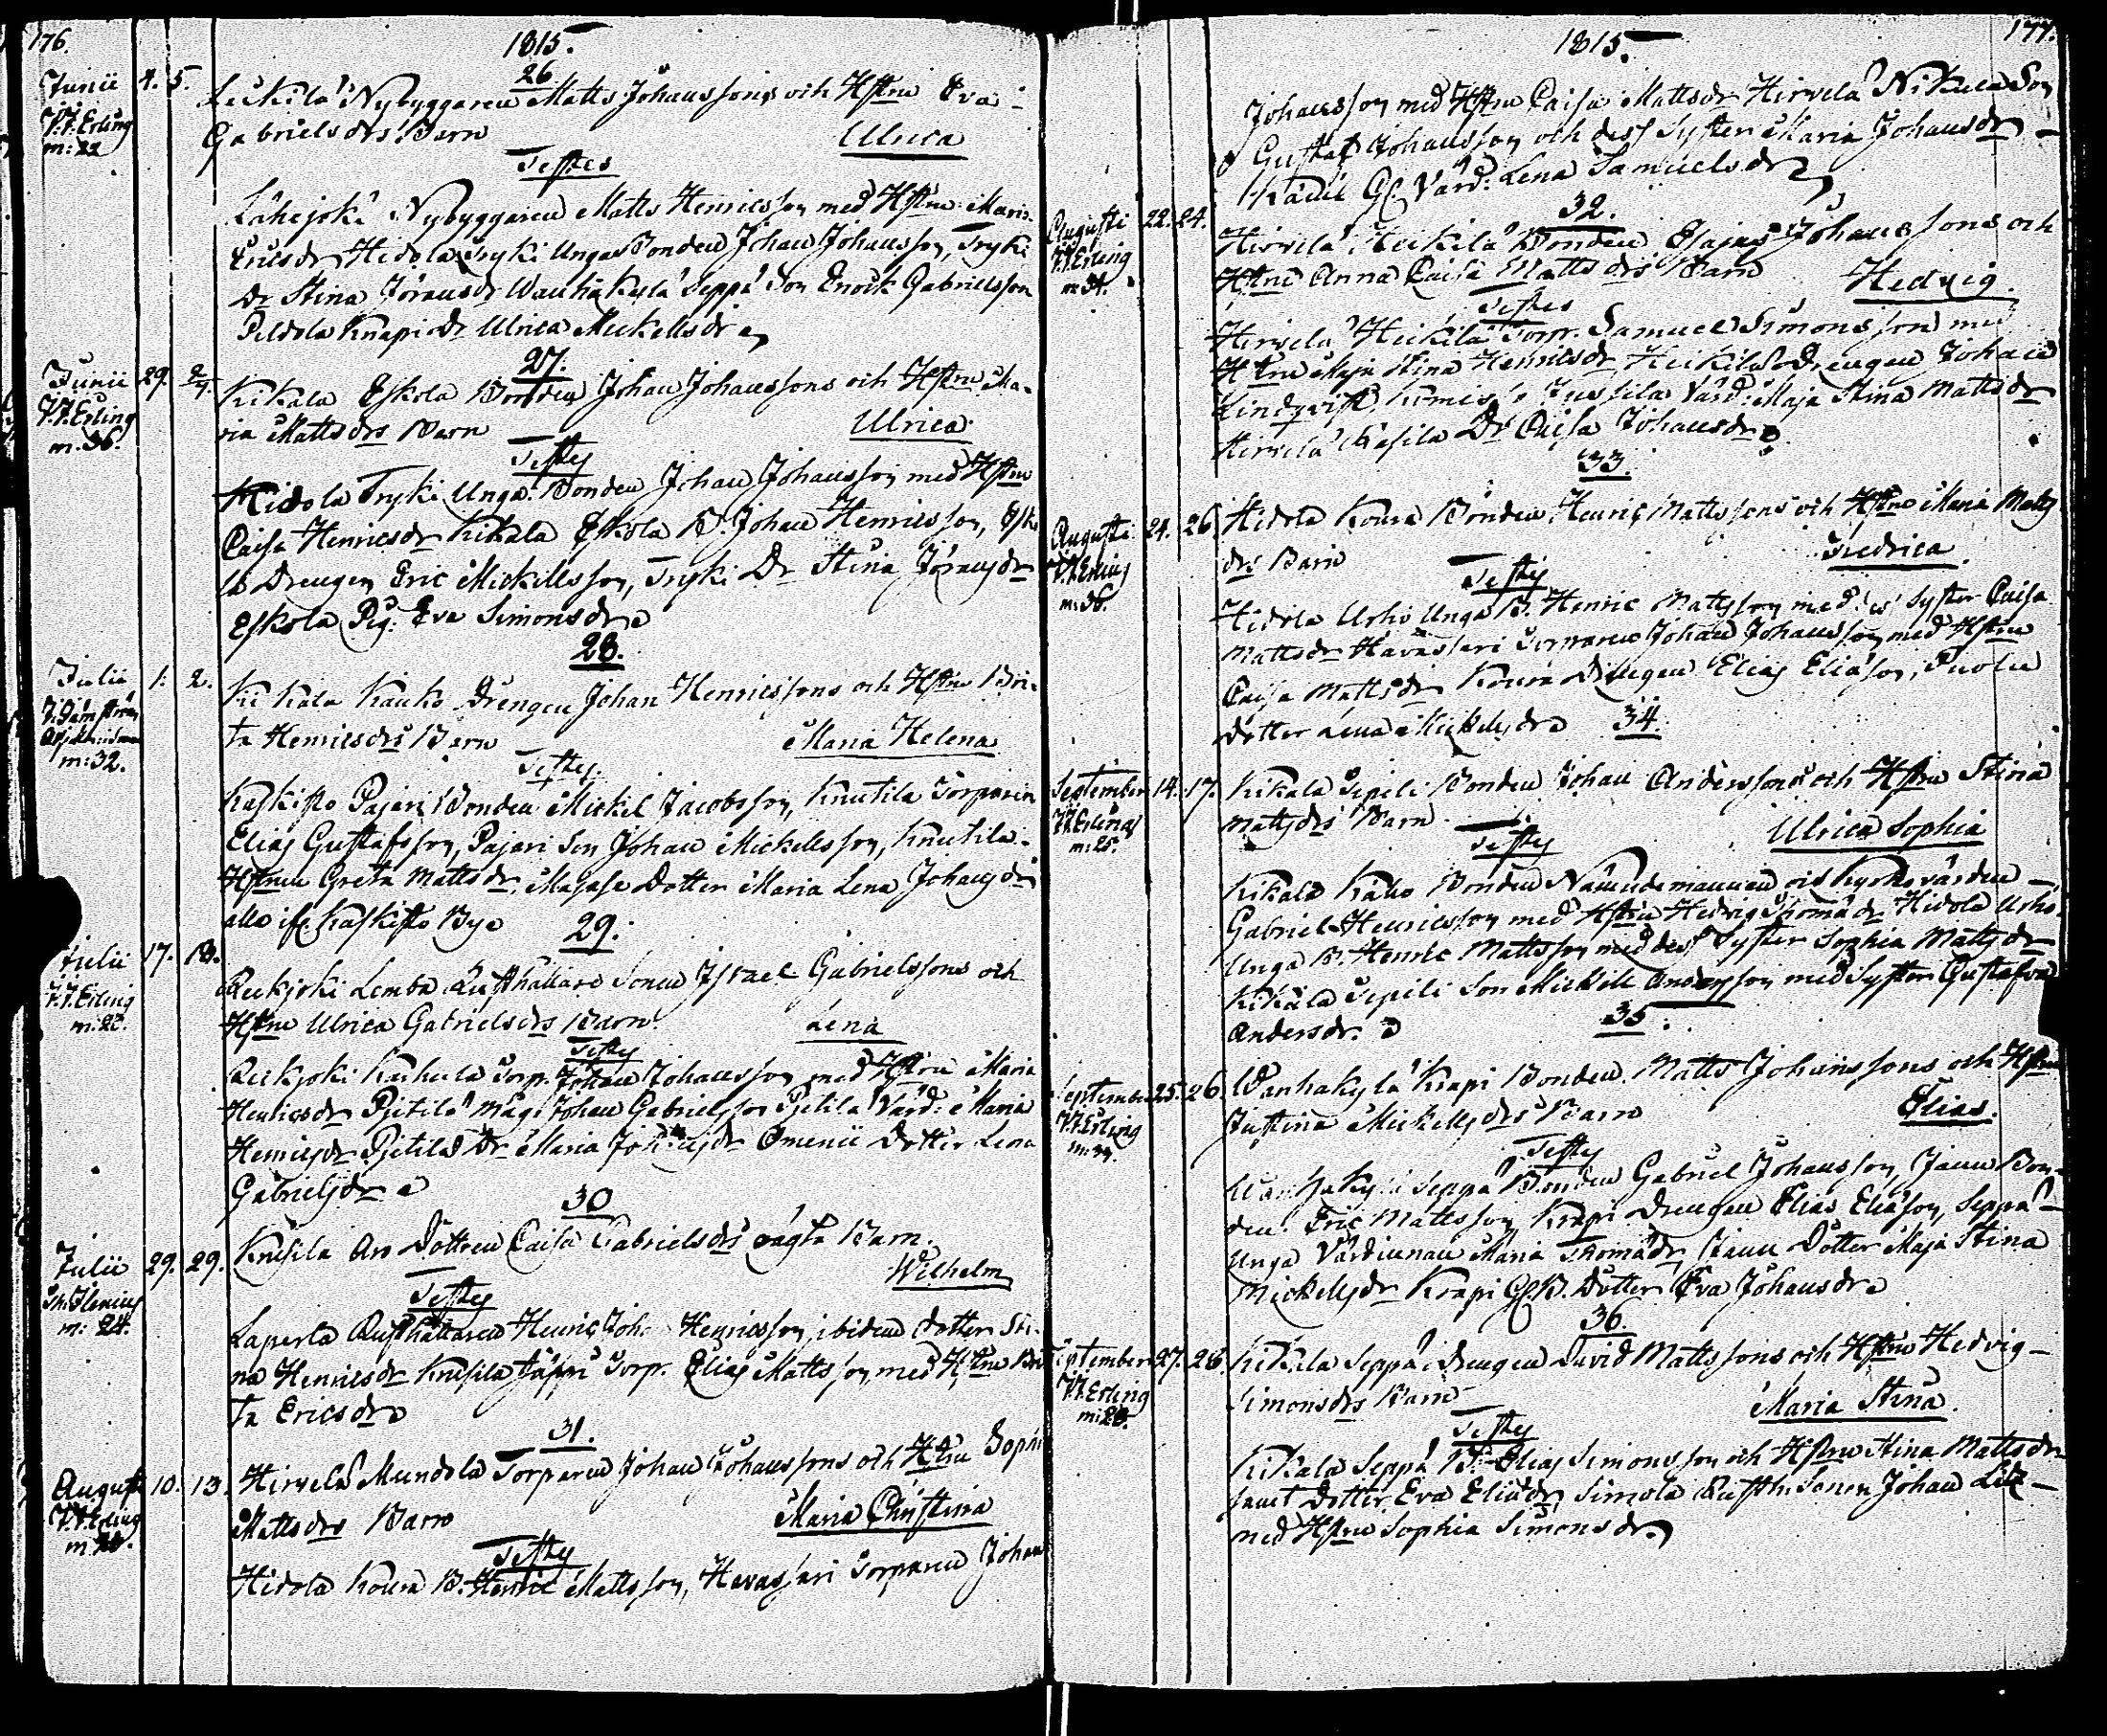 176.
1815.
26
Junii 4. 5. Leikilä Nybyggaren Matts Johanssons och Hstru Eva
V.P. Erling Gabrielsdrs Barn Ulrica
m: 22
Testes
Lähejoki Nybyggaren Matts Henricsson med Hstru Maria
Ericsdr, Hidola Tryki Unga Bonden Johan Johansson, Tryki
Dr Stina Jöransdr Wanhakylä Seppä Son Enock Gabrielsson
Krapi Dr Ulrica Mickelsdr
27.
Junii 29. 2/7. Kikala Eskola Bonden Johan Johanssons och Hstru Ma-
V.P. Erling ria Mattsdrs Barn Ulrica
m. 36.
Testes
Hidola Tryki Unga Bonden Johan Johansson med Hstru
Caisa Henricsdr Kikala Eskola B. Johan Henricsson,
Drengen Eric Mickelsson, Tryki Dr Stina Jöransdr
Eskola Pig. Eva Simonsdr
28.
Julii 1. 2. Kikala Kauko Drengen Johan Henricssons och Hstru Bri-
ta Henricsdrs Barn Maria Helena
m: 32.
Testes
Kaskisto Pajari Bonden Mickel Jacobsson, Knutila Torparen
Elias Gustafsson, Pajari Son Johan Mickelsson, Knutila
Hstrun Greta Mattsdr, Dotter Maria Lena Johansdr
alla if. Kaskisto By
29.
Julii 17. 18. Kuskjoki Lemba Rusthållare Sonen Israel Gabrielssons och
V.P. Erling Hstru Ulrica Gabrielsdrs Barn Lena
Testes
Torp. Johan Johansson med Hstru Maria
Henricsdr Pietilä Måg Johan Gabrielsson Pietilä Värd: Maria
Henricsdr Pietilä Dr Maria Dotter Lena
Gabrielsdr
30
Julii 29. 29. Knusila Aro Dottren Caisa Gabrielsdrs oägta Barn.
Wilhelm
m: 24.
Testes
Laperla Rusthållaren Henric Joh. Henricsson, ibidem dotter Sti-
na Henricsdr Knusila Torp. Elias Mattsson med Hstru Bri
ta Ericsdr
31.
August 10. 13. Hirvelä Mundola Torparen Johan Johanssons och Hstru Sophi
V.P. Erling Mattsdrs Barn Maria Christina
Testes
Hidola Koura B. Henric Mattsson, Havasjari Torparen Johan
1815.
177.
Johansson med Hstru Caisa Mattsdr Hirvelä Nikula Son
Gustaf Johansson och dess Syster Maria Johansdr
Gl. Värd: Lena Samuelsdr
32.
Augusti 22. 24. Hirvelä Heikilä Bonden Esajas Johanssons och
V.P. Erling Hstru Anna Caisa Mattsdrs Barn Hedvig.
m 34.
Testes
Hirvelä Heikilä Torp. Samuel Simonsson med
Hstru Maja Stina Henricsdr, Heikilä Drengen Johan
Lindqvist, Jussila Värd: Maja Stina Mattsdr
Hirvelä Dr Caisa Johansdr
33.
Augusti 24. 26. Hidola Koura Bonden Henric Mattssons och Hstru Maria Matts
V.P. Erling drs Barn Fredrica
m: 36.
Testes
Hidola Urho Unga B. Henric Mattsson med Syster Caisa
Mattsdr Havasjari Torparen Johan Johansson med Hstru
Caisa Mattsdr Koura Drengen Elias Eliasson,
dotter Lena Mickelsdr
34.
September 14. 17. Kikala Sipili Bonden Johan Anderssons och Hstru Stina
V.P. Erling Mattsdrs Barn
m: 25. Ulrica Sophia
Testes
Kikala Bonden Nämndemannen och Kyrkovärden
Gabriel Henricsson med Hstru Hedvig Thomädr Hidola Urho
Unga B. Henric Mattsson med dess Syster Sophia Mattsdr
Kikala Sipili Son Mickel Andersson med Syster Gustafva
Andersdr.
35.
September 25. 26. Wanhakylä Krapi Bonden Matts Johanssons och Hstru
V.P. Erling Justina Mickelsdrs Barn Elias.
Testes
Wanhakylä Seppä Bonden Gabriel Johansson, Bon-
den Eric Mattsson, Krapi Drengen Elias Eliasson, Seppä
Unga Värdinnan Maria Thomädr, Dotter Maja Stina
Mickelsdr Krapi Gl. B. Dotter Eva Johansdr
36.
September 27. 28. Kikala Seppä drengen David Mattssons och Hstru Hedvig
V.P. Erling Simonsdrs Barn Maria Stina.
m: 28.
Testes
Kikala Seppä B. Elias Simonsson och Hstru Stina Mattsdr
samt Dotter Eva Eliædr, Simola Rusth. Sonen Johan
med Hstru Sophia Simonsdr